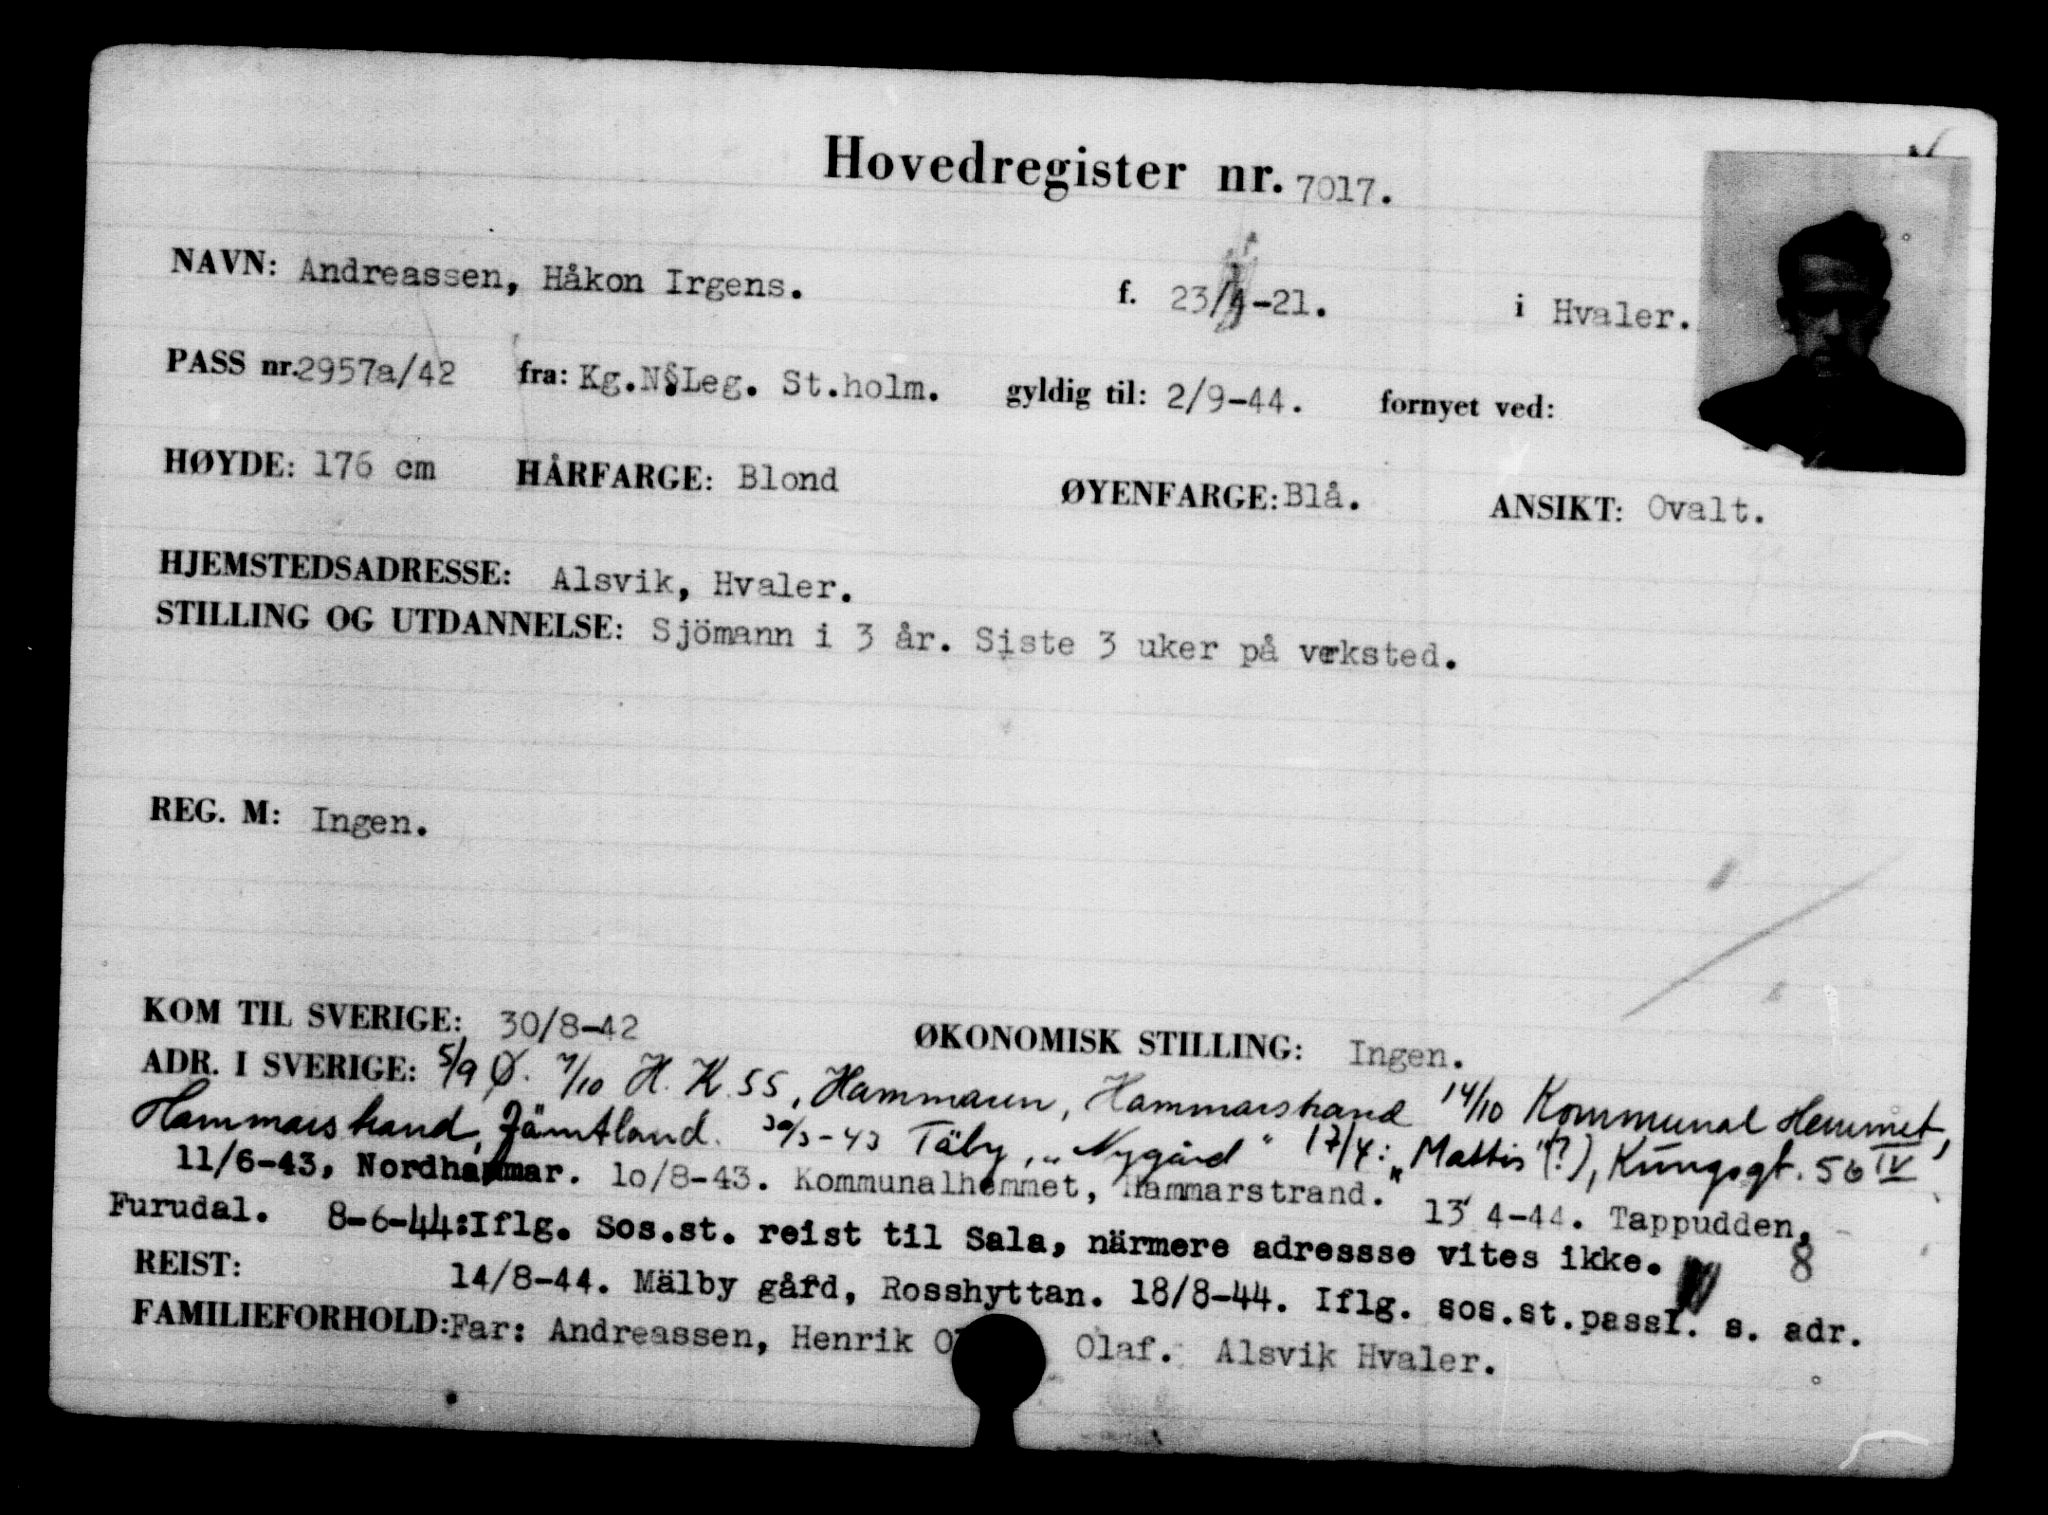 Hovedregister nr. 7017.
NAVN: Andreassen, Håkon Irgens. f. 23/4-21. i Hvaler.
PASS nr. 2957a/42 fra: Kg.N.Leg. St.holm. gyldig til: 2/9-44. fornyet ved:
HØYDE: 176 cm HÅRFARGE: Blond ØYENFARGE: Blå. ANSIKT: Ovalt.
HJEMSTEDSADRESSE: Alsvik, Hvaler.
STILLING OG UTDANNELSE: Sjömann i 3 år. Siste 3 uker på verksted.
REG. M: Ingen.
KOM TIL SVERIGE: 30/8-42 ØKONOMISK STILLING: Ingen.
ADR. I SVERIGE: 5/9 Ø. 7/10 H. K. 55, Hammaren, Hammarstrand 14/10 Kommunal Hemmet,
Hammarstrand, Jämtland. 30/3-43 Täby, "Nygård" 17/4: "Mattis"(?), Kungsgt. 56 IV
11/6-43, Nordhammar. 10/8-43. Kommunalhemmet, Hammarstrand. 13 4-44. Tappudden,
Furudal. 8-6-44: Iflg. Sos.st. reist til Sala, närmere adressse vites ikke. 8
REIST: 14/8-44. Mälby gård, Rosshyttan. 18/8-44. Iflg. sos.st.passl. s. adr.
FAMILIEFORHOLD: Far: Andreassen, Henrik Olaf. Alsvik Hvaler.